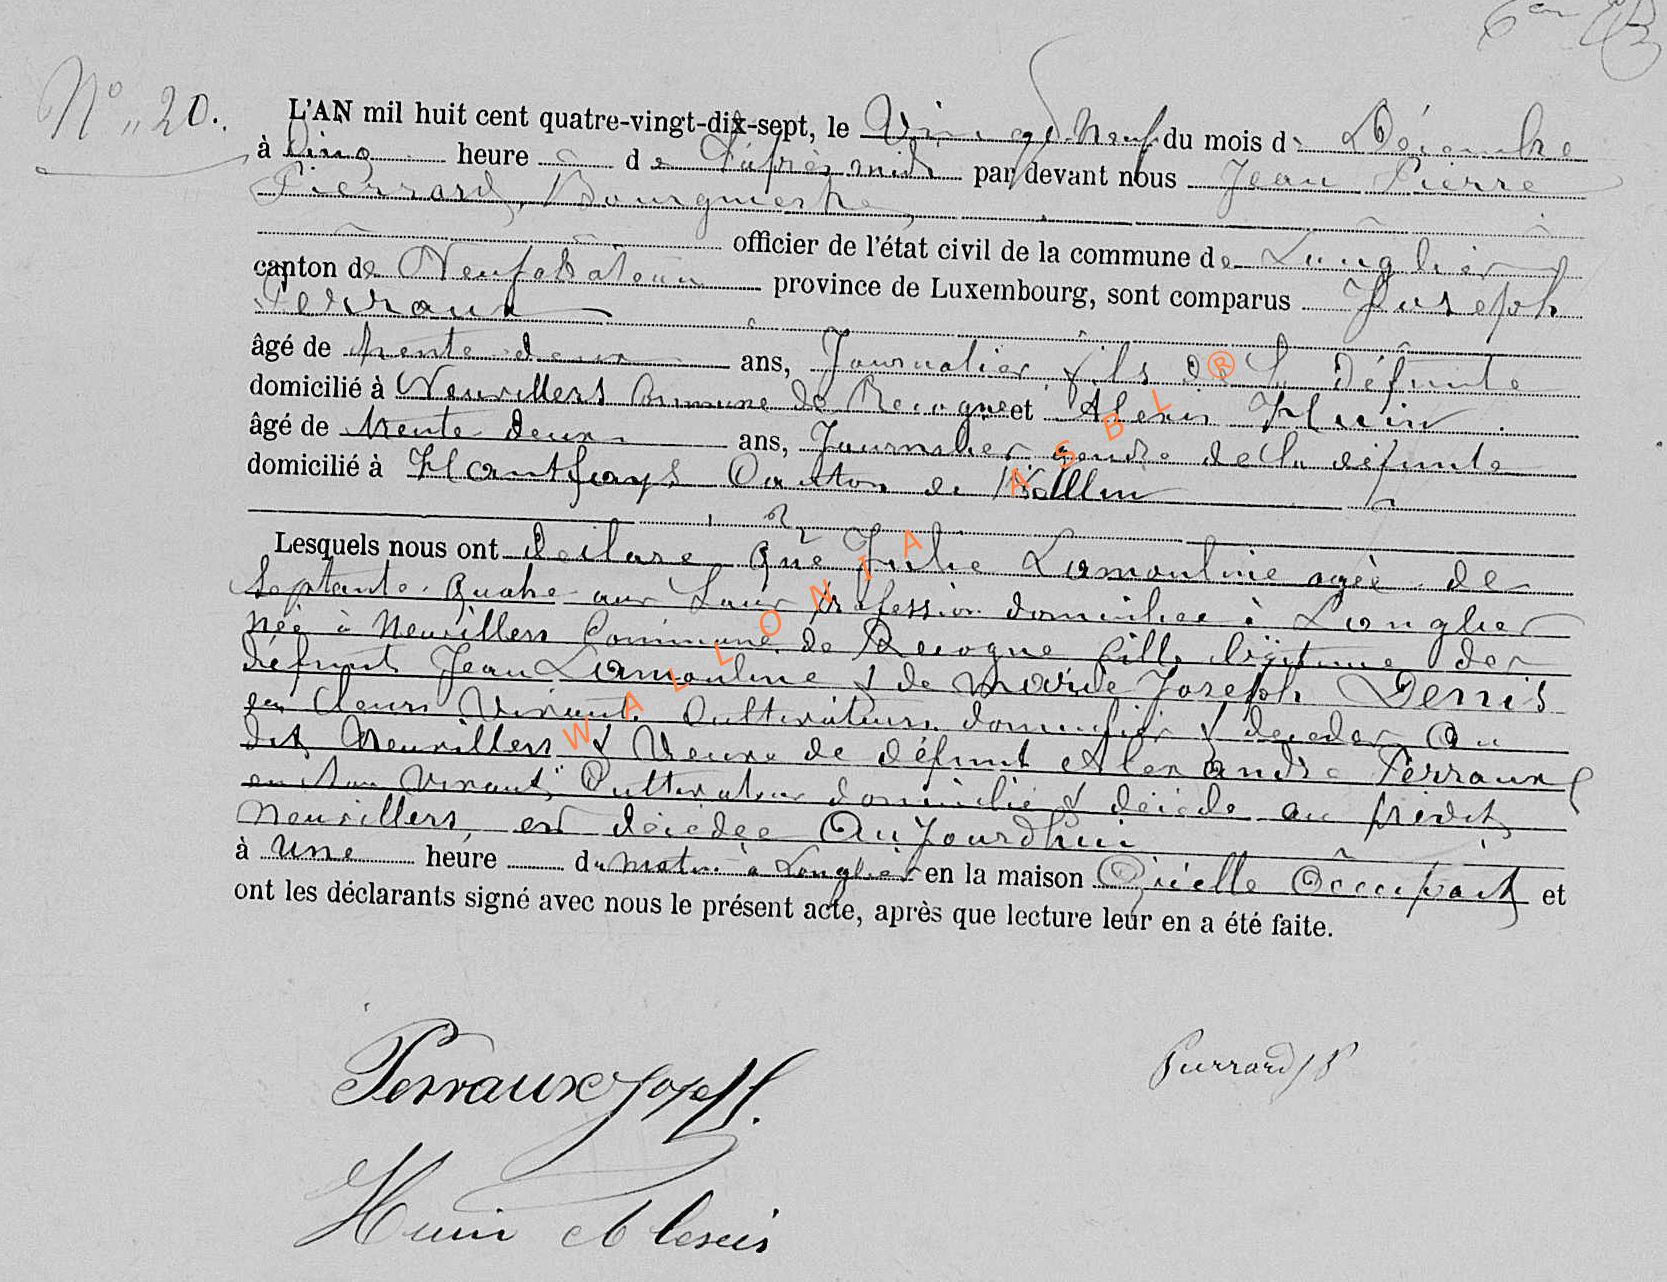 N° 20.
L'AN mil huit cent quatre-vingt-dix-sept, le Vingt Neuf du mois de Décembre
à Cinq heure de l'après midi par devant nous Jean Pierre
Pierrard, Bourgmestre,
officier de l'état civil de la commune de Longlier
canton de Neufchâteau province de Luxembourg, sont comparus Joseph
Perraux
âgé de trente deux ans, Journalier, fils de la défunte
domicilié à Neuvillers Commune de Recogne et Alexis Huin
âgé de trente deux ans, Journalier gendre de la défunte
domicilié à Hautfays Canton de Wellin
Lesquels nous ont déclaré que Julie Lamouline agée de
Septante quatre ans Sans profession domiciliée à Longlier
née à Neuvillers Commune de Recogne fille légitime des
défunts Jean Lamouline & de Marie Joseph Denis
en leurs Vivant Cultivateurs domiciliés & décédés Au
dit Neuvillers & Veuve de défunt Alexandre Perraux
en son vivant Cultivateur domicilié & décédé au prédit
Neuvillers, est décédée Aujourdhui
à une heure du matin à Longlier en la maison Qu'elle Occupait et
ont les déclarants signé avec nous le présent acte, après que lecture leur en a été faite.
Perraux Joseph.
Pierrard J P
Huin Alexis
WALLONIA ASBL ®